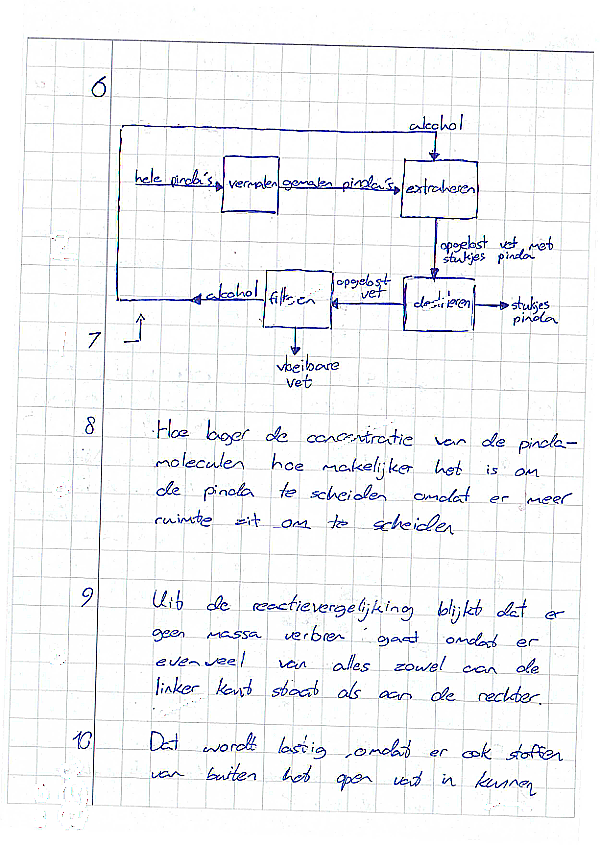 6
alcohol
hele pinda's
vermalen
gemalen pinda's
extraheren
opgelost vet met
stukjes pinda
alcohol
filtren
opgelost
vet
destileren
stukjes
pinda
7
vloeibare
vet
8
Hoe lager de concentratie van de pinda-
moleculen hoe makelijker het is om
de pinda te scheiden omdat er meer
ruimte zit om te scheiden
9
Uit de reactievergelijking blijkt dat er
geen massa verloren gaat omdat er
evenveel van alles zowel aan de
linker kant staat als aan de rechter.
10
Dat wordt lastig omdat er ook stoffen
van buiten het open vat in kunnen